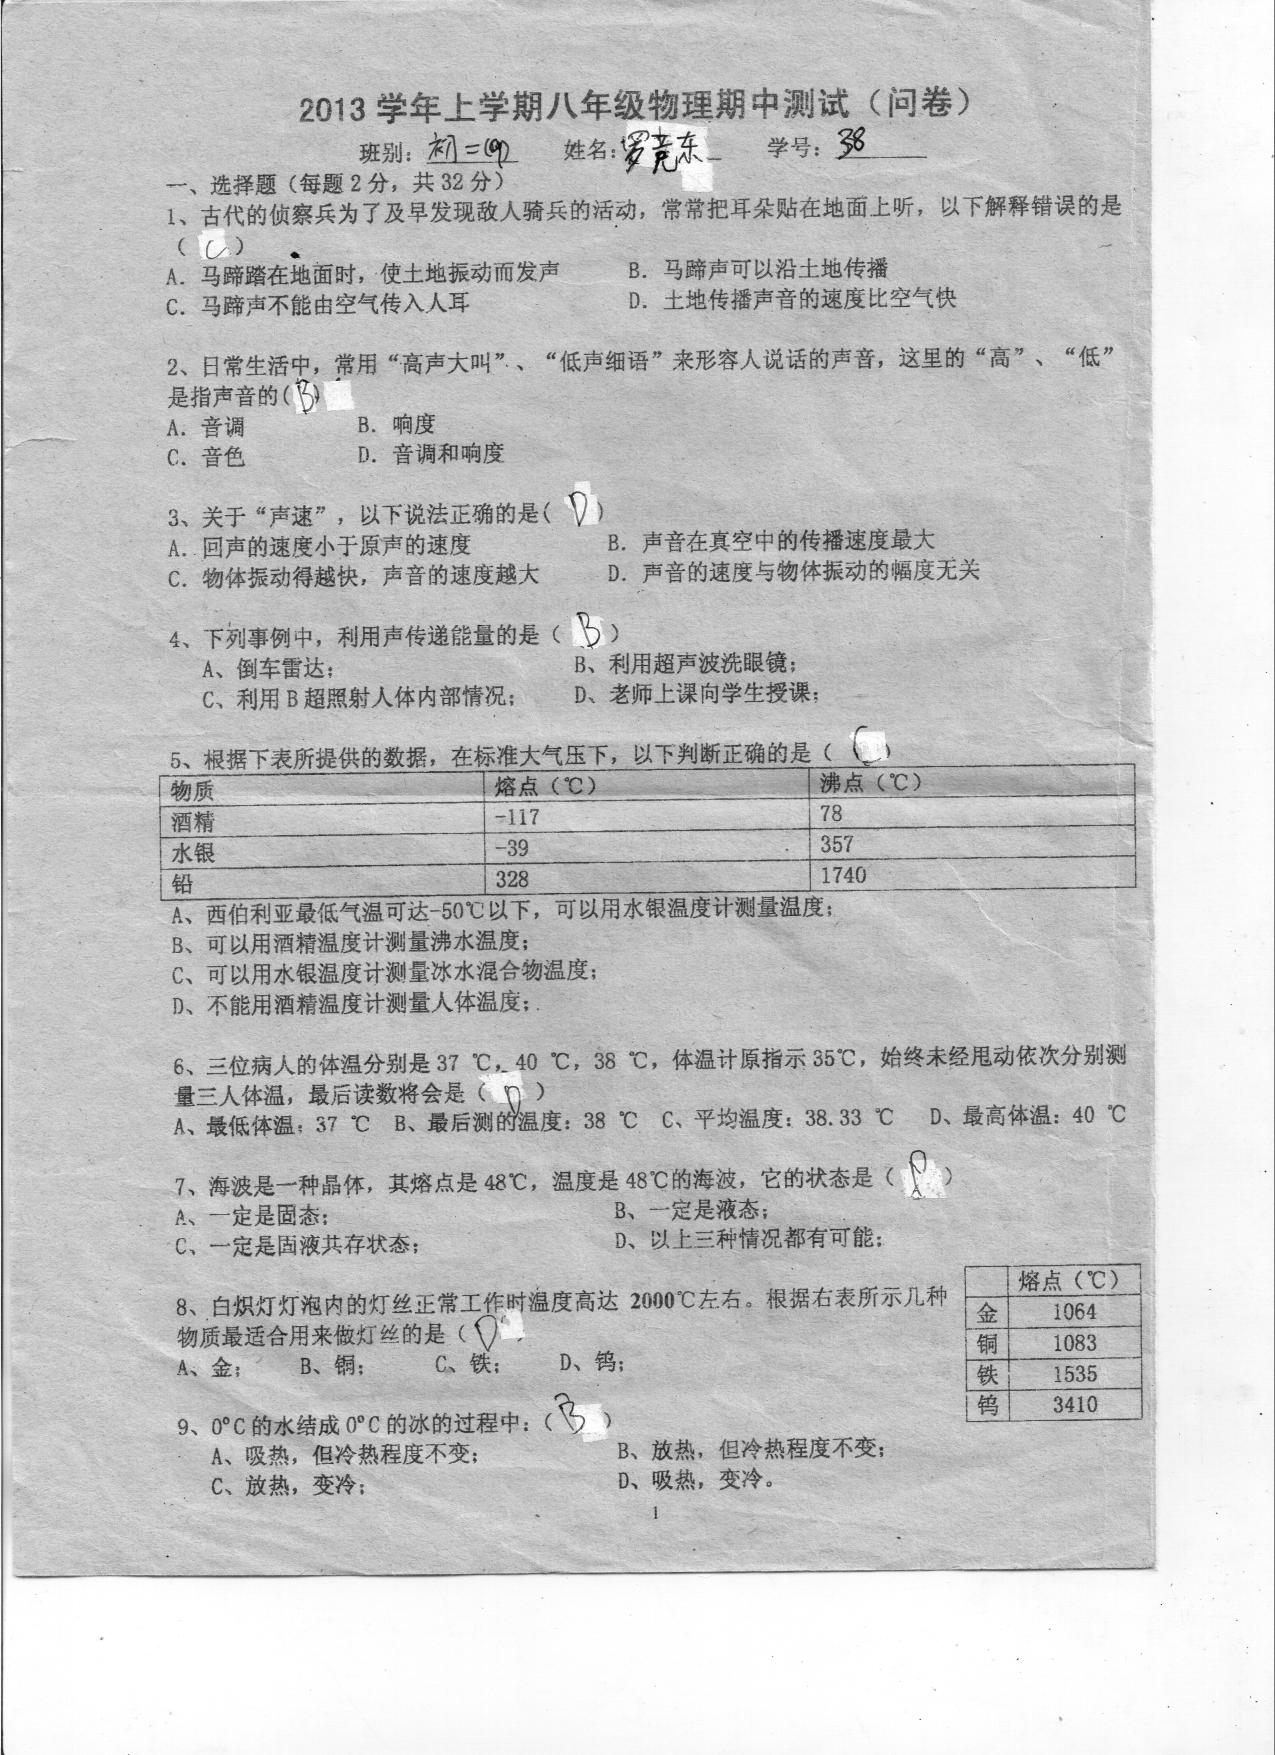 2013学年上学期八年级物理期中测试（问卷）
班别：初二(4) 姓名：罗竞东 学号：38
一、选择题（每题2分，共32分）
1、古代的侦察兵为了及早发现敌人骑兵的活动，常常把耳朵贴在地面上听，以下解释错误的是
（ C ）
A．马蹄踏在地面时，使土地振动而发声 B．马蹄声可以沿土地传播
C．马蹄声不能由空气传入人耳 D．土地传播声音的速度比空气快
2、日常生活中，常用“高声大叫”、“低声细语”来形容人说话的声音，这里的“高”、“低”
是指声音的( B )
A．音调 B．响度
C．音色 D．音调和响度
3、关于“声速”，以下说法正确的是( D )
A．回声的速度小于原声的速度 B．声音在真空中的传播速度最大
C．物体振动得越快，声音的速度越大 D．声音的速度与物体振动的幅度无关
4、下列事例中，利用声传递能量的是（ B ）
A、倒车雷达； B、利用超声波洗眼镜；
C、利用B超照射人体内部情况； D、老师上课向学生授课；
5、根据下表所提供的数据，在标准大气压下，以下判断正确的是（ C ）
物质 熔点（℃） 沸点（℃）
酒精 -117 78
水银 -39 357
铅 328 1740
A、西伯利亚最低气温可达-50℃以下，可以用水银温度计测量温度；
B、可以用酒精温度计测量沸水温度；
C、可以用水银温度计测量冰水混合物温度；
D、不能用酒精温度计测量人体温度；
6、三位病人的体温分别是37 ℃，40 ℃，38 ℃，体温计原指示35℃，始终未经甩动依次分别测
量三人体温，最后读数将会是（ D ）
A、最低体温：37 ℃ B、最后测的温度：38 ℃ C、平均温度：38.33 ℃ D、最高体温：40 ℃
7、海波是一种晶体，其熔点是48℃，温度是48℃的海波，它的状态是（ ）
A、一定是固态； B、一定是液态；
C、一定是固液共存状态； D、以上三种情况都有可能；
8、白炽灯灯泡内的灯丝正常工作时温度高达 2000℃左右。根据右表所示几种
物质最适合用来做灯丝的是（ D
A、金； B、铜； C、铁； D、钨；
熔点（℃）
金 1064
铜 1083
铁 1535
钨 3410
9、0°C的水结成0°C的冰的过程中：（ B ）
A、吸热，但冷热程度不变； B、放热，但冷热程度不变；
C、放热，变冷； D、吸热，变冷。
1